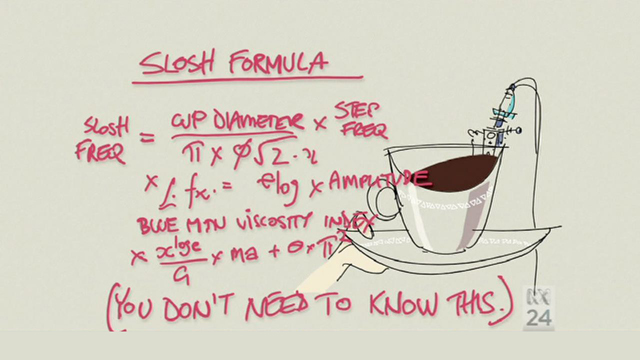 SLOSH FORMULA
SLOSH FREQ = CUP DIAMETER × STEP FREQ
π × φ√2 . x
× f. fx. = elog × AMPLITUDE
BLUE MTN VISCOSITY INDEX
× x^lose / G × ma + θ × π²
(YOU DON'T NEED TO KNOW THIS.)
24